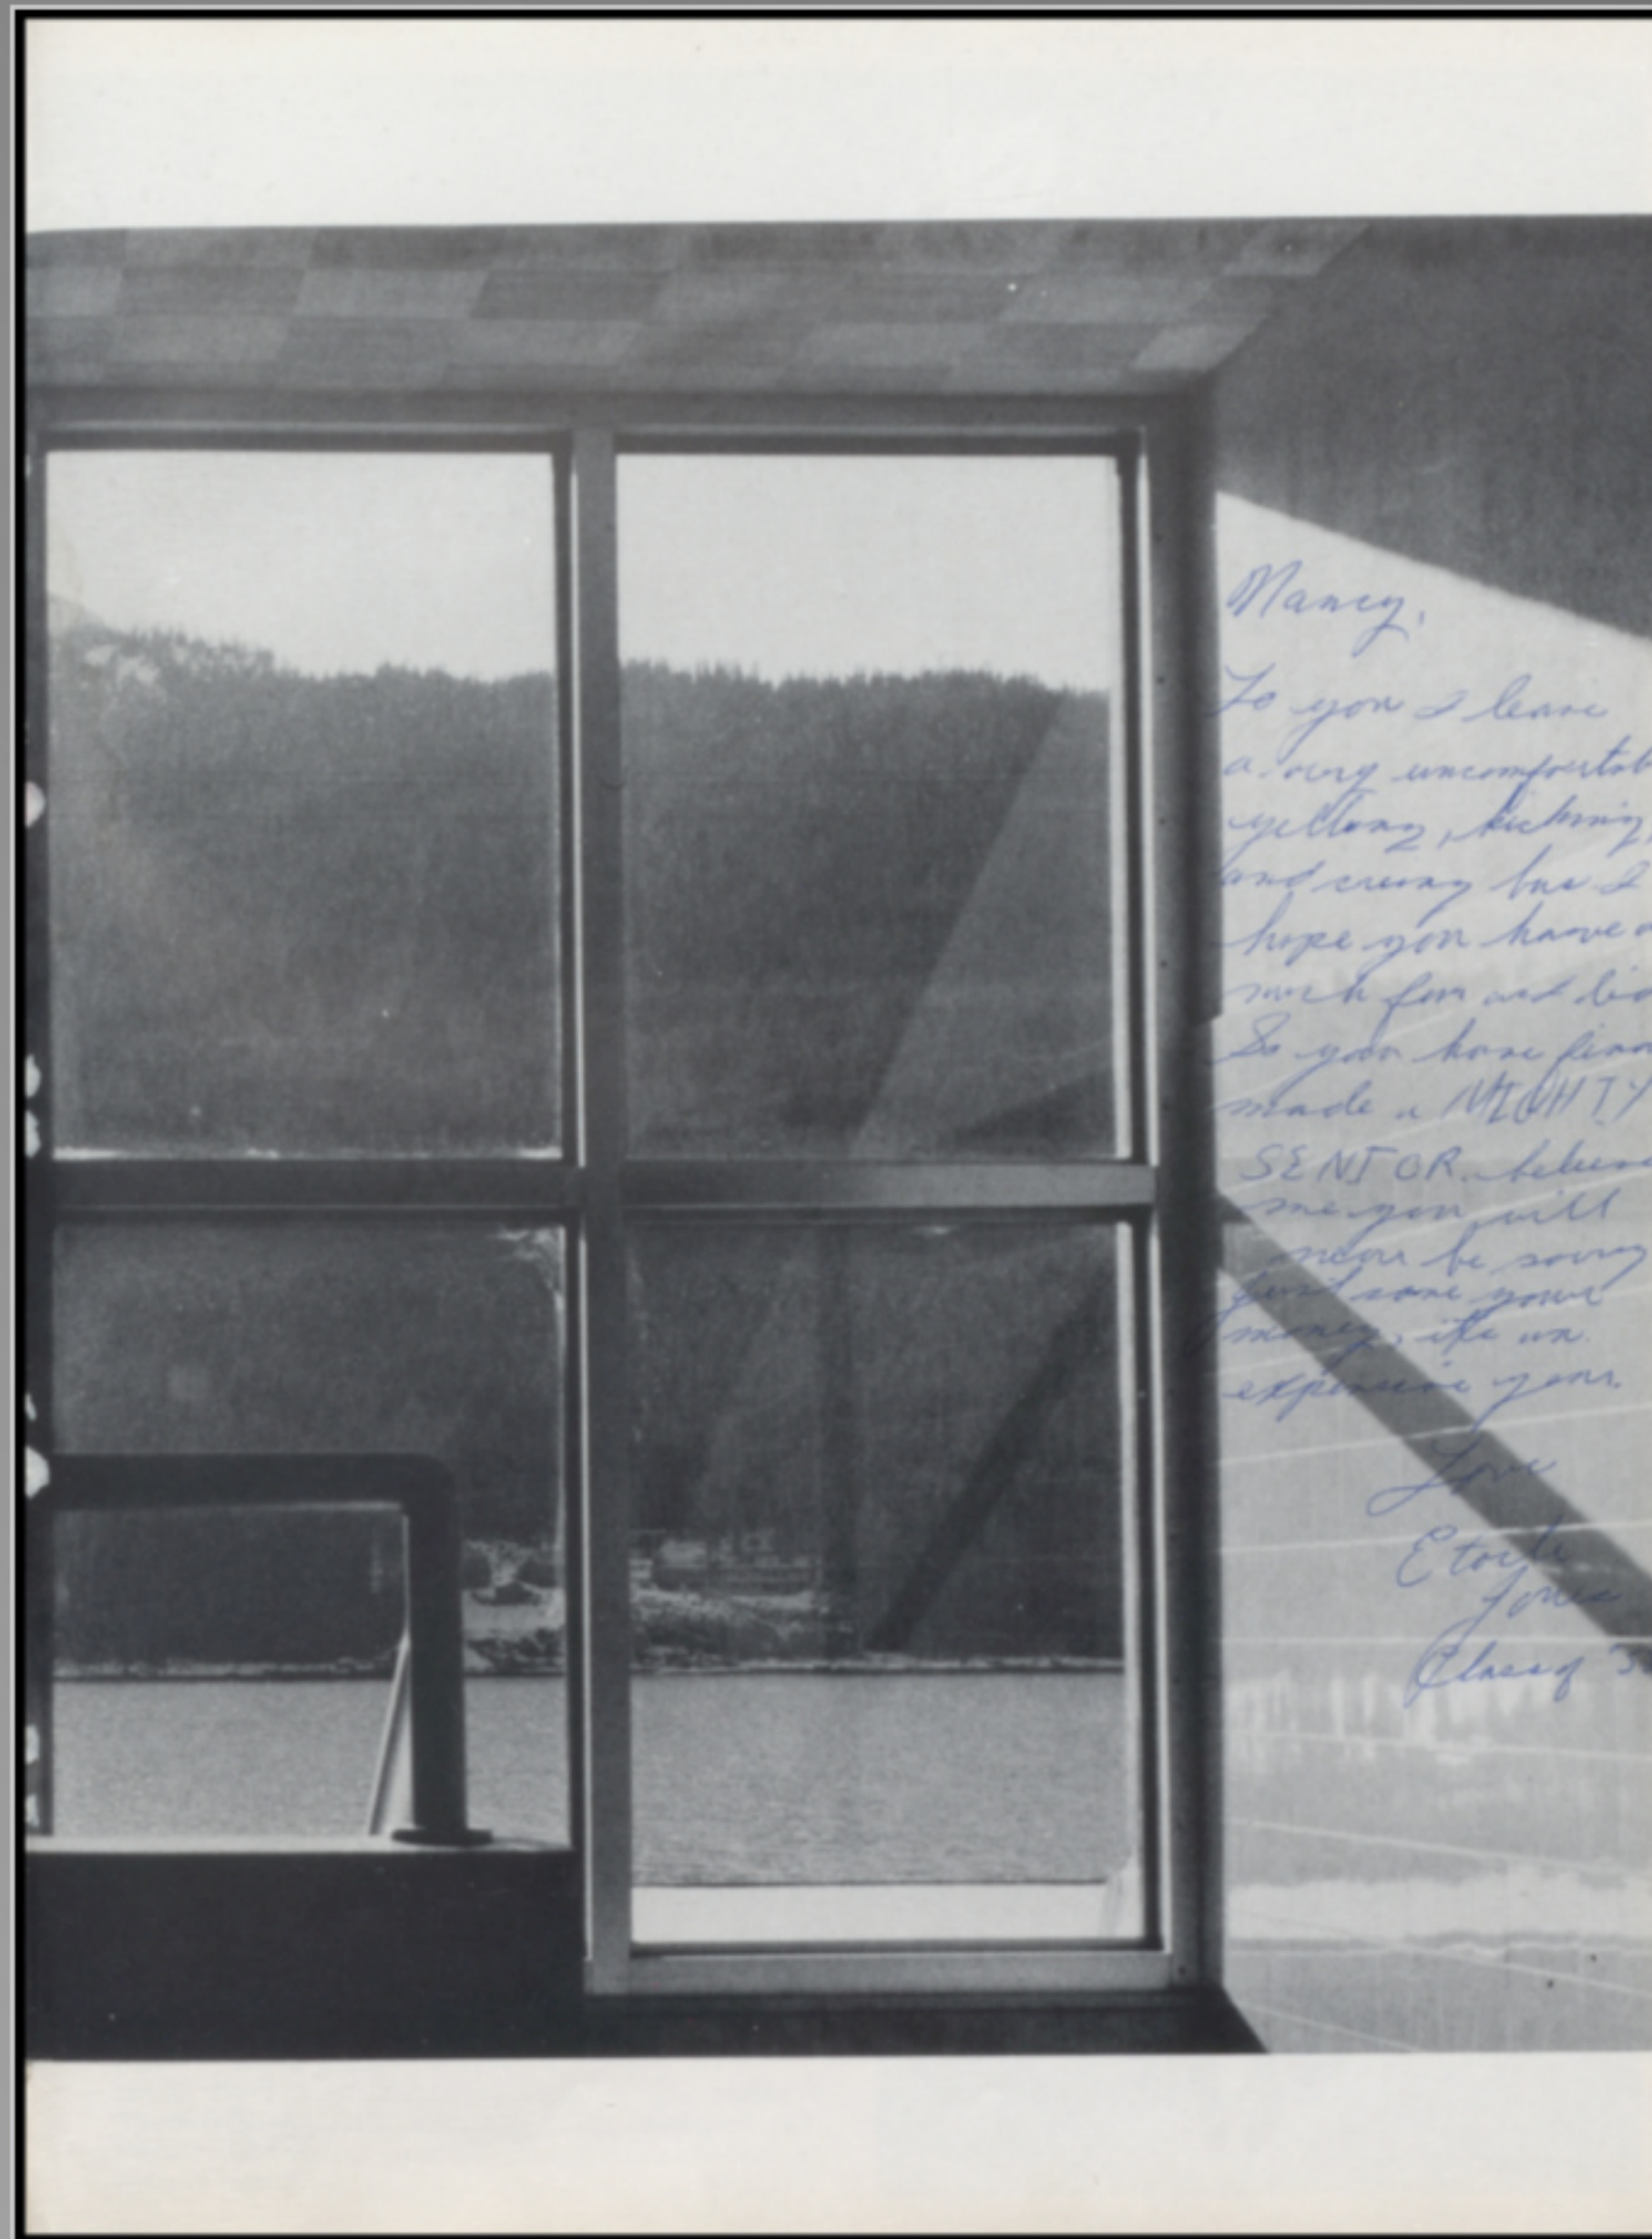 Nancy,
To you I leave
a very uncomfortab
yelling, kicking,
and crung bus I
hope you have a
much fun as I did
So you have fina
made a MIGHTY
SENIOR. believe
me you will
never be sorry
just save your
money, it's an
expensive year.
Love
Etoile
Jones
Class of